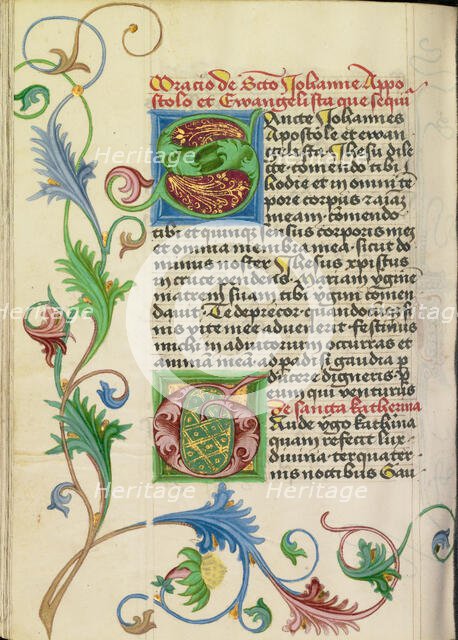 Oracio de Scto Johanne Appo
stolo et Ewangelista que sequi
Sancte Johannes
Apostole et ewan
gelista Jhesu dile
cte comendo tibi
hodie et in omni te
pore corpus et aīaz
meam Comendo
tibi et quinqz sensus corporis mei
et omnia membra mea sicut do
minus noster Jhesus xpistus
in cruce pendens Mariam vginē
matrem suam tibi vgini comen
dauit Te deprecor et quando dies fi
nis vite mee aduenerit festinus
michi in adiutorium occurras et
animā meā ad padisi gaudia p
ducere digneris P eum qui venturus
De sancta Katherina
Gaude vgo kathīna
quam refecit lux
diuina ter quater
nis noctibus Gau
Heritage
Heritage
Heritage
Heritage
Heritage
Heritage